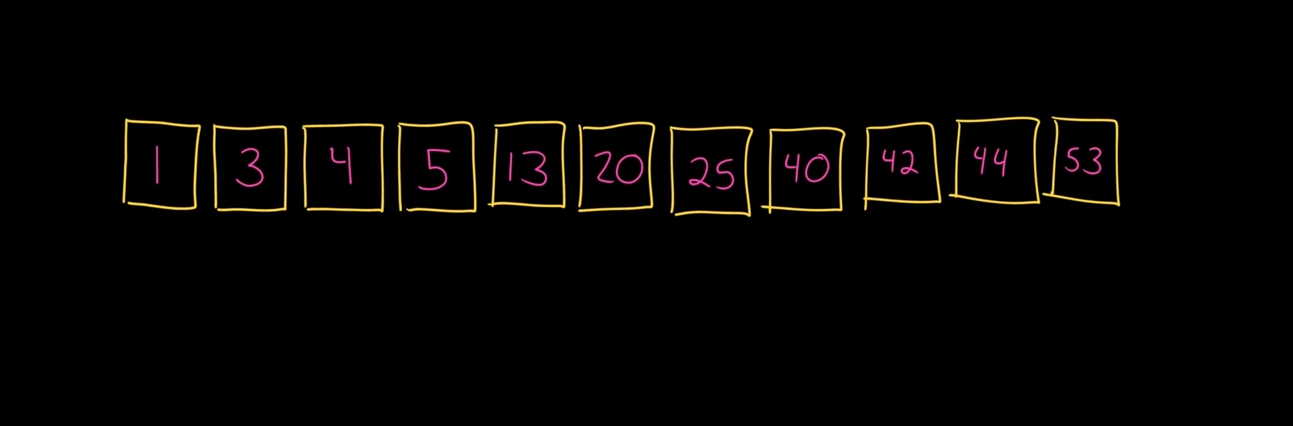 1 3 4 5 13 20 25 40 42 44 53